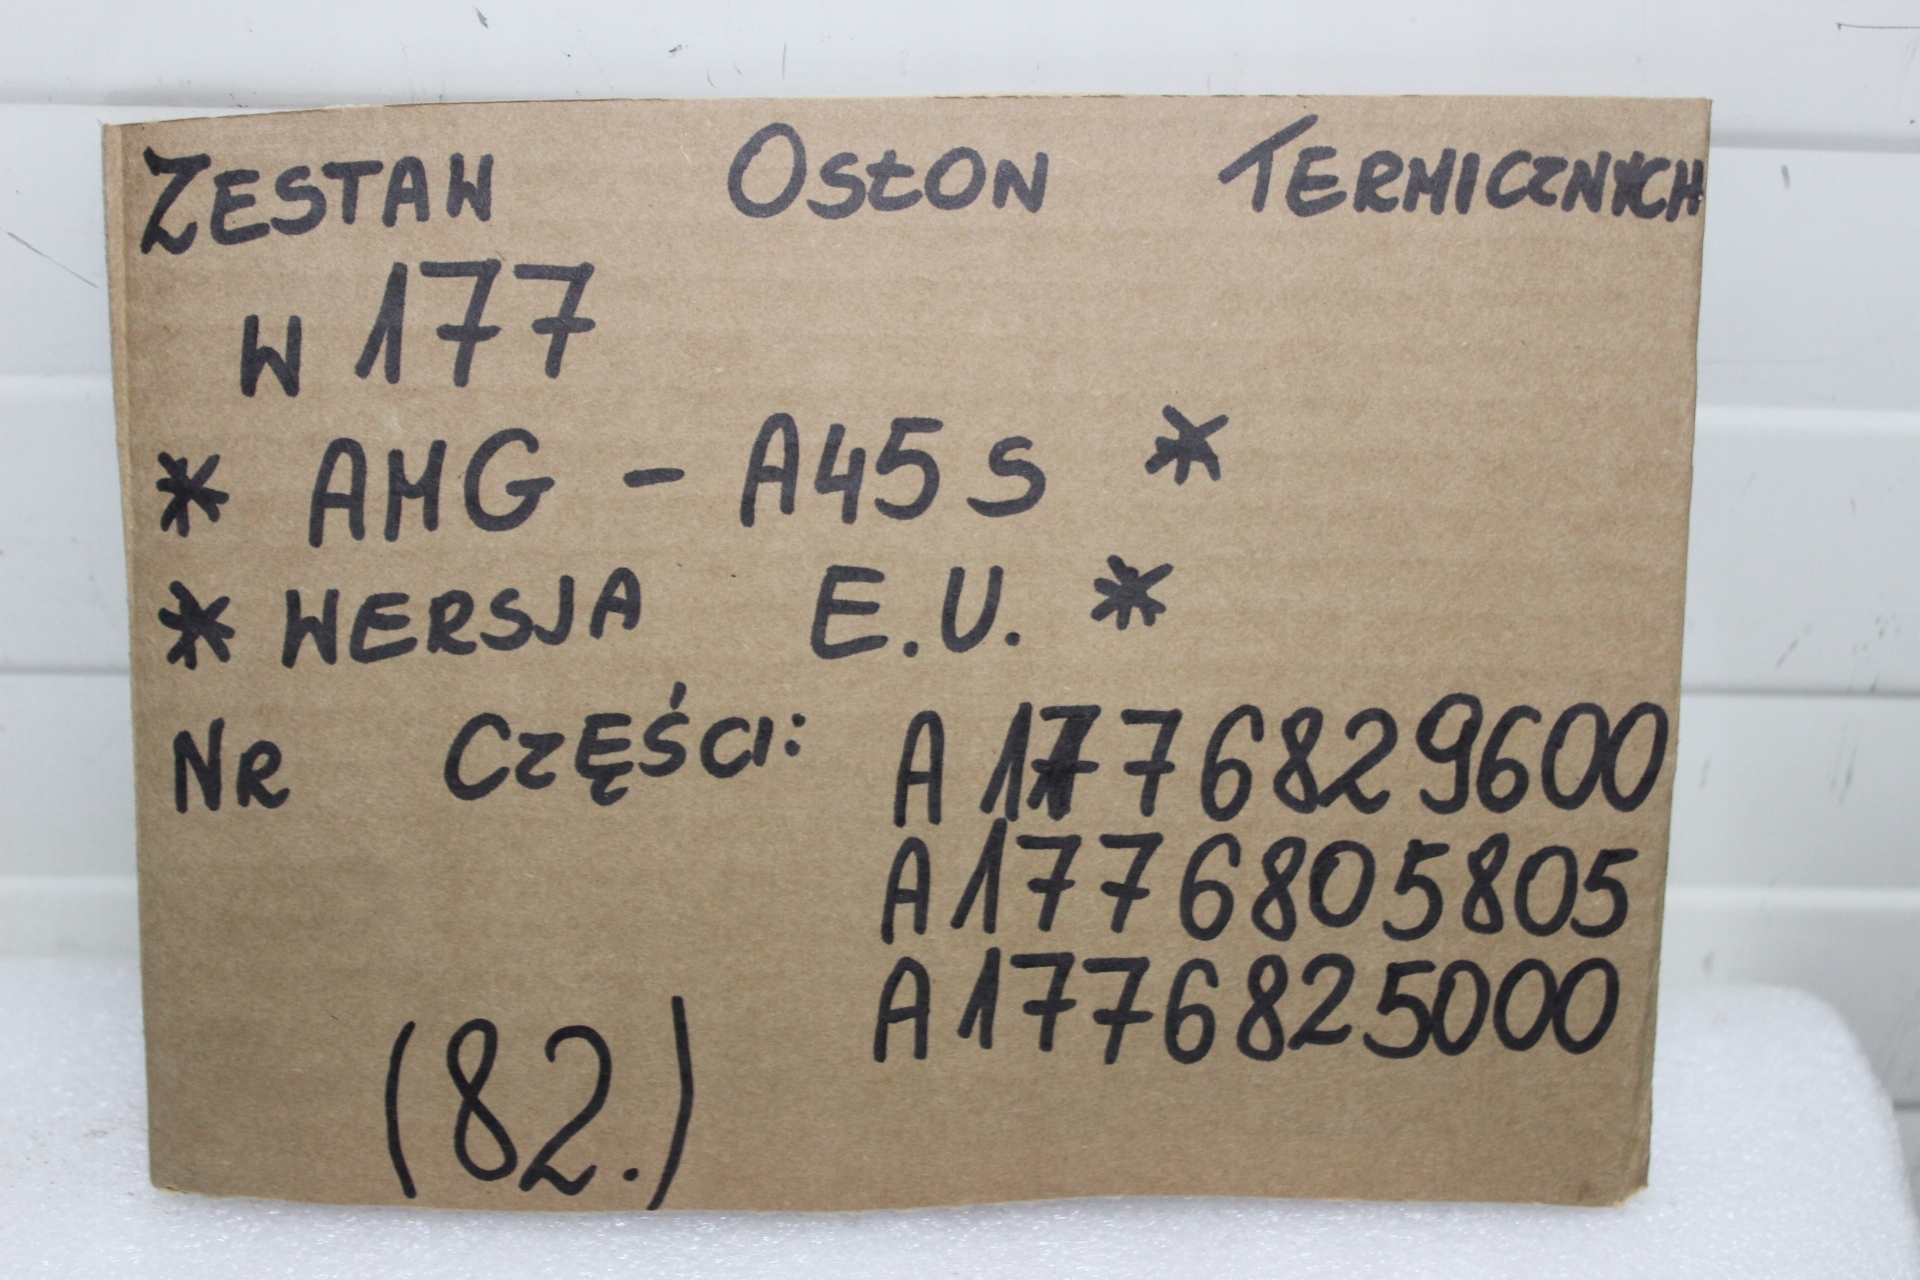 ZESTAW OSŁON TERMICZNYCH
W 177
* AMG - A45 S *
* WERSJA E.U. *
NR CZĘŚCI: A 1776829600
A 1776805805
A 1776825000
(82.)